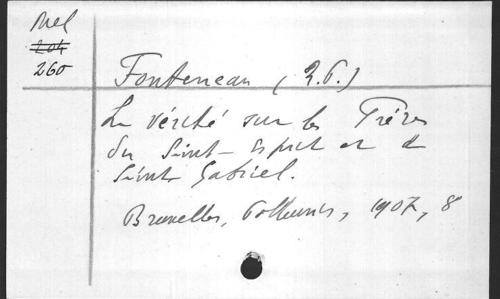 Mel
204
260
Fonteneau (
La vérité sur les Frères
du Saint-Esprit et de
Saint Gabriel.
Bruxelles, Polleunis, 1907, 8